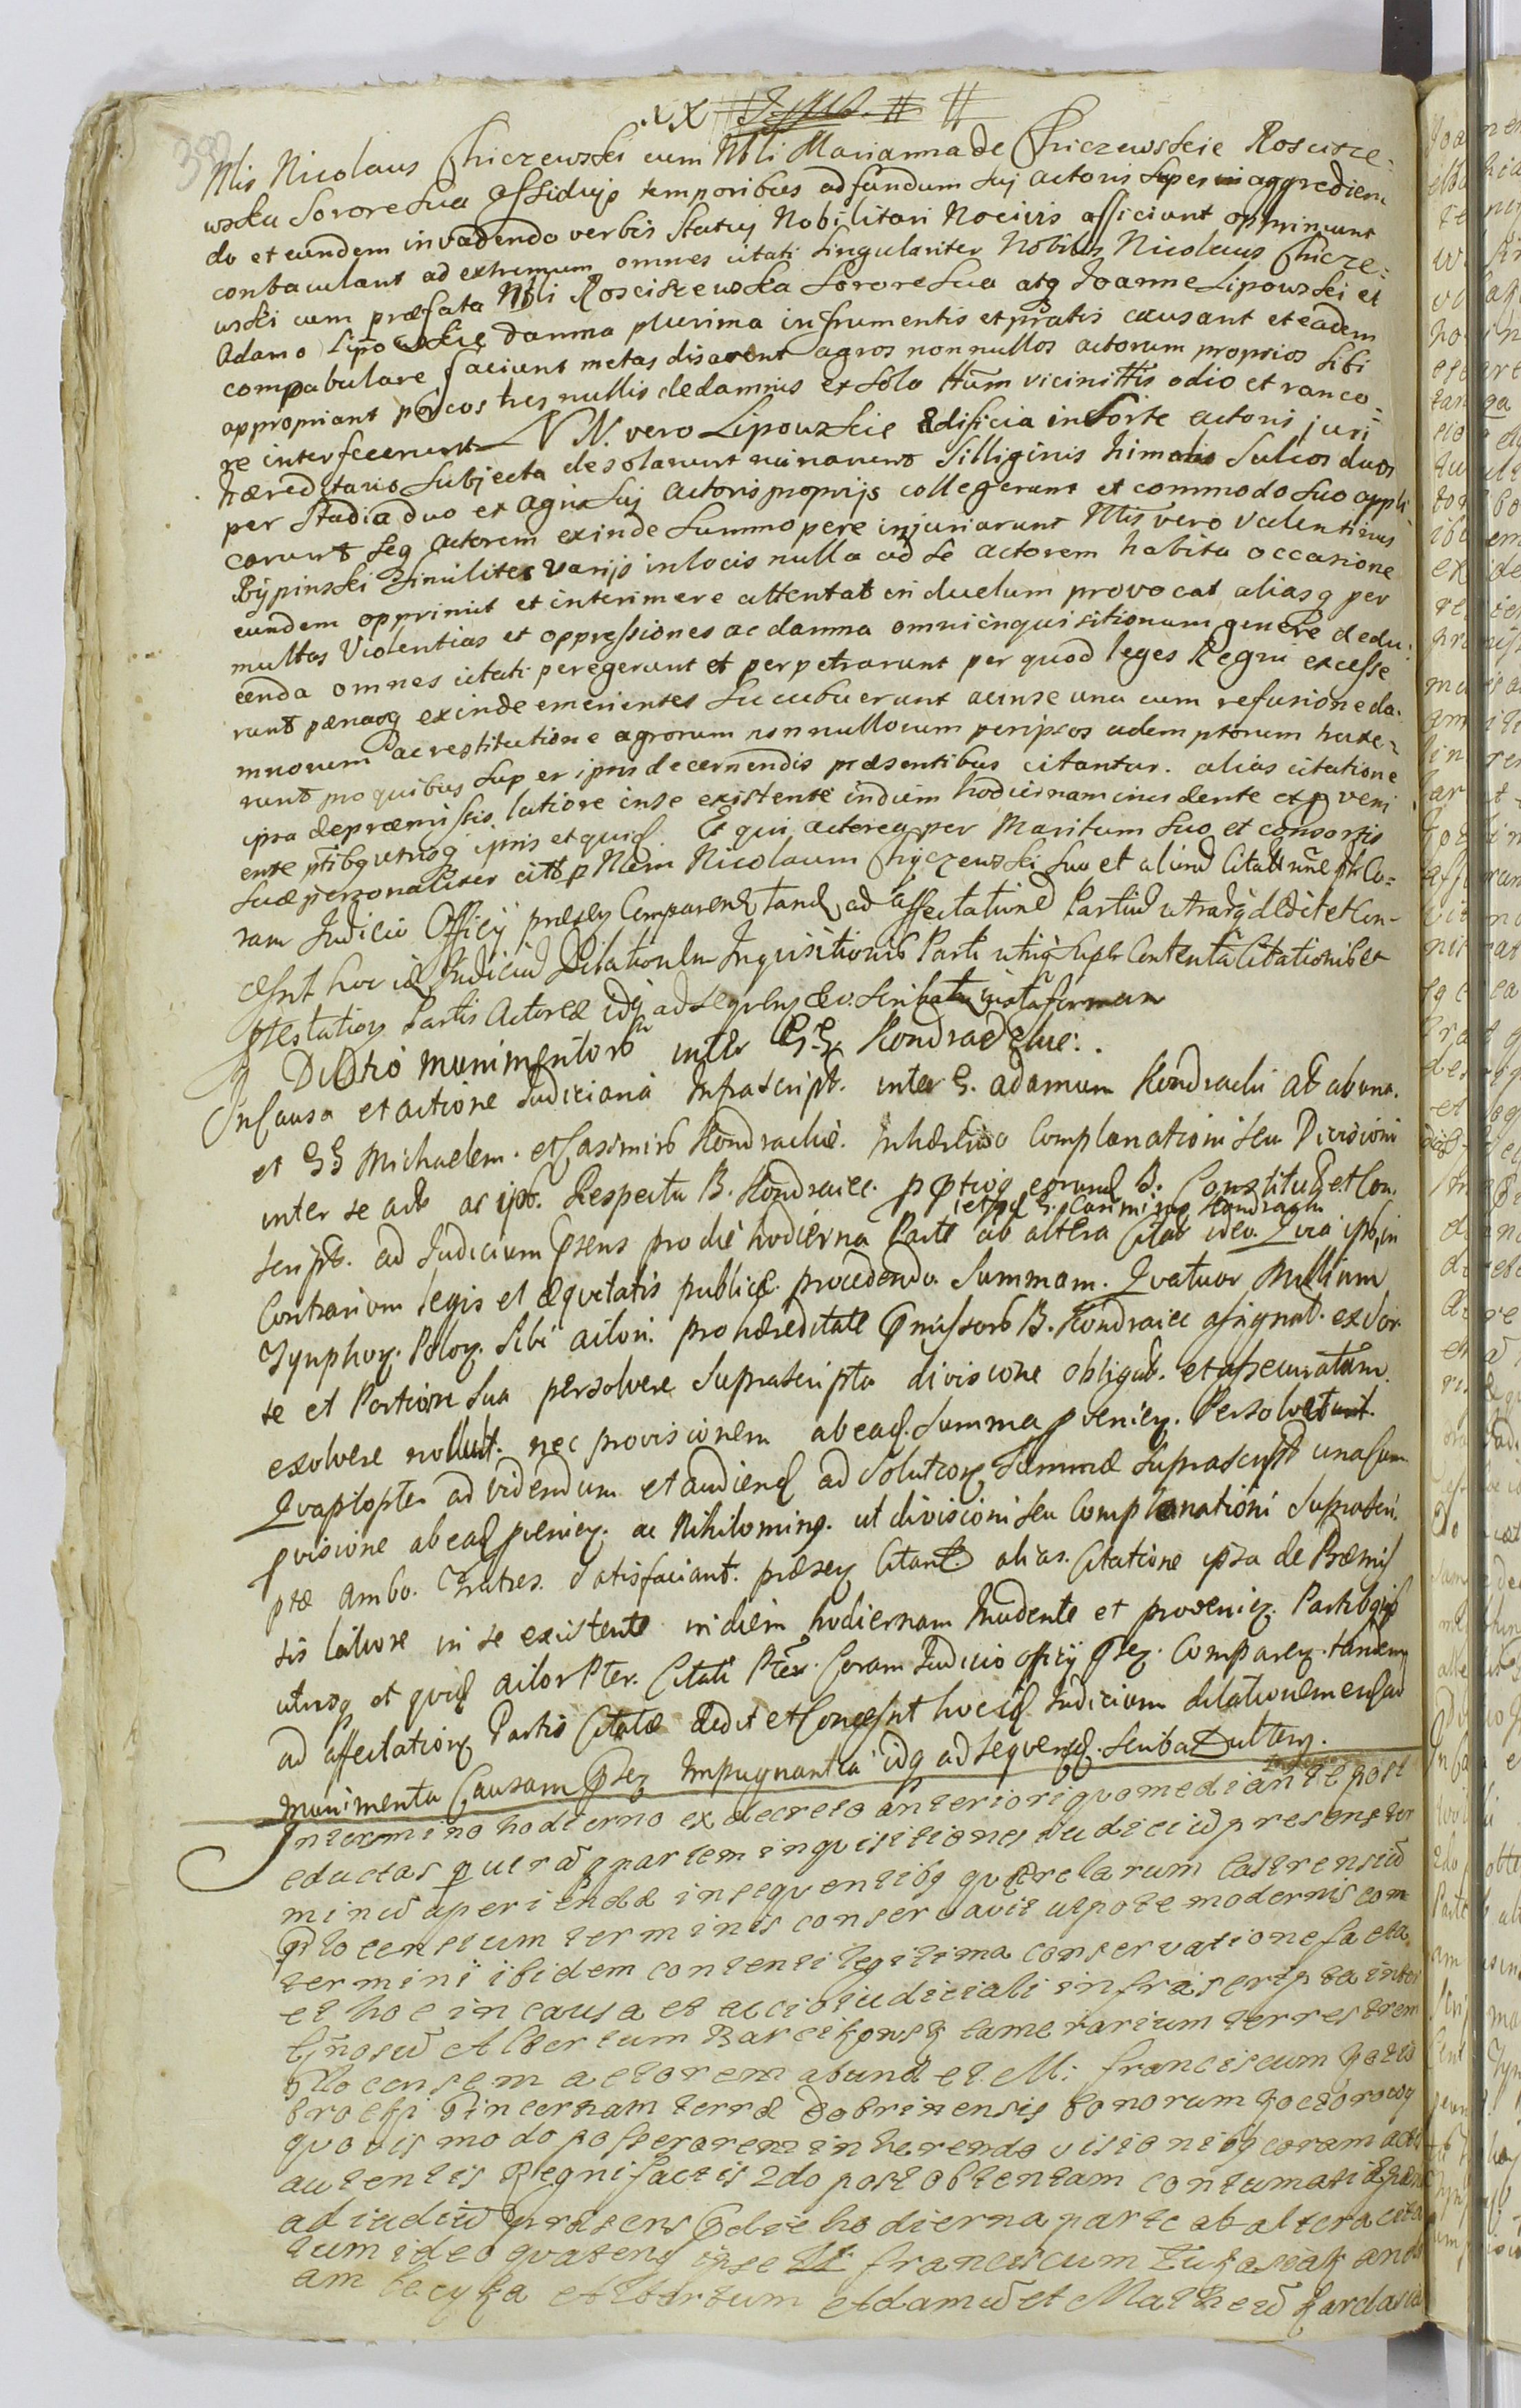 Nlis Nicolaus Chiczewski cum Nbli Marianna de Chiczewskie Roscisze=
wska Sorore Sua assiduis temporibus ad fundum sui actoris super aggredien
do et eundem invadendo verbis statuj Nobilitari Nocivis afficiunt opprimunt
conbaculant ad extremum omnes citati singulariter Nobiles Nicolaus Chicze=
wski cum præfata Nbli Rosciszewska Sorore Sua atq Joanne Lipowski et
Adamo Lipowskie damna plurima in frumentis et pratis causant et eadem
compabulare faciunt metas disarant agros nonnullos actorum proprios sibi
appropriant porcos tres nullis de damnis ex solo ttum vicinittis odio et ranco=
re interfecerunt N N. vero Lipowskie Edificia in Sorte actoris juri
hæreditario Subjecta desolarunt ruinarunt Silliginis himalis Sulcos duos
per Stadia duo ex Agris Suj Actoris proprijs collegerunt et commodo Suo appli
carunt Seq Actorem exinde Summopere injuriarunt Nlis vero Valentinus
Rÿpinski Similiter Varijs in locis nulla ad Se Actorem habita occasione
eundem opprimit et interimere attentat in duelum provocat aliasq per
multas Violentias et oppressiones ac damna omni inquisitionum genere dedu=
cenda omnes citati peregerunt et perpetrarunt per quod leges Regni excesse
runt pænasq exinde emerientes Sucubuerunt ac inse una cum refusione da=
mnorum ac restitutione agrorum nonnullorum per ipsos ademptorum
runt pro quibus Super ipsis decernendis præsentibus citantur. alias citatione
ipsa de præmissis latiore inse existente in diem hodiernam incidente et p veni
ente ptibq utrisq ipsis et quid. Et qui actorea per Maritum Suo et consortis
Suæ personaliter citt p Nlem Nicolaum Chÿczewski Suo et aliord Citatt nne ptr Co=
ram Judicio Officÿ præsen Comparent Tand ad affectatione Partiu utrarq dedit et Con-
cessit hoc id Judiciu Dilatione Inquisitionis Parti utriq super Contenta Citationis et
ptestation Partis Actoreæ idq ad sequens scribatu juxta formam
Dilatio munimentorum inter GG Kondrackie.
In Causa et actione Judiciaria Infrascript. inter G. adamum Kondracki Act ab una.
et GG Michaelem. et Casimirum Kondrackie. Inhærendo Complanationi seu Divisioni
inter se act. ac ipso. Respectu B. Kondraiec. eorund B. Constitut. et Con.
et G. Casimirus Kondracki
script. ad Judicium Præsens pro die hodierna Parte ab altera Citat ideo. Quia ipsi, in
Contrarium legis et æquitatis publicæ. procedendo. Summam. Quatuor Millium
Tynphor. Polon. Sibi actori. pro hæreditate præmissorum B. Kondraiec assignat. ex Sor
te et Portione Sua persolvere Suprascripta divisione obligat. et assecuratam.
exolvere nollunt. nec provisionem ab ead. Summa pvenien. Persolvunt.
Quapropter ad videndum et audiend ad Solution Summæ Suprascript una cum
pvisione ab ead pvenien. ac Nihilominus. ut divisioni seu Complanationi Suprascri.
ptæ ambo. Fratres. Satisfaciant. præsen Citant. alias. Citatione ipsa de Præmis
sis latiore in se existente in diem hodiernam Incidente et provenien. Partibq
utrisq et quid actor Pter. Citati Pter. Coram Judicio Offcÿ Præs. Comparen. tandem
ad affectation Partis Citatæ dedit et Concessit hoc id. Judicium dilationem
munimenta Causam præs Impugnantia idq ad sequens.
In termino hodierno ex decreto anteriori quo mediante post
eductas p utramq partem inquisitiones Iudiciu presens ter
minu aperiendæ insequentibq quærelarum Castrensiu
Plocensium terminis conservavit utpote modernis com
termini ibidem contenti legitima conservatione facta
et hoc in causa et actio iudiciali infrascripta inter
Albertum Barcikowski camerarium terrestrem
Plocensem actorem ab una et M. Franciscum
Pincernam terræ Dobrinensis bonorum
quovis modo possesorem inherendo visionibq coram actis
autentis Regni factis 2do post obtentam contumatiæ
ad iudiciu præsens p die hodierna parte ab altera cita
tum ideo quatenq ipse Franciscum
Albertum Adamu et Matheu